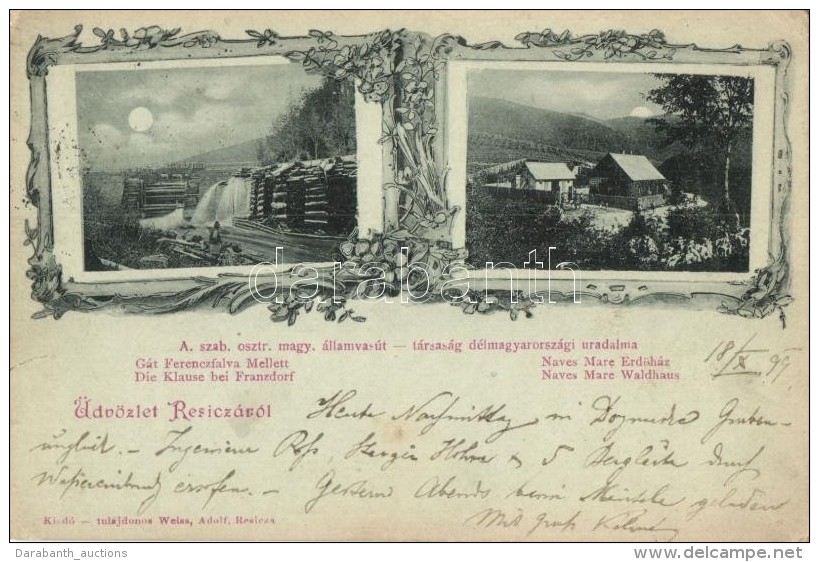 darabanth
A. szab. osztr. magy. államvasút — társaság délmagyarországi uradalma
Gát Ferenczfalva Mellett
Die Klause bei Franzdorf
Naves Mare Erdőház
Naves Mare Waldhaus
18/X 99
Üdvözlet Resiczáról
Heute Nachmittag in Doman Gruben-
unglück. – Ingenieur 5 Bergleute durch
Wassereinbruch ersoffen. – Gestern Abends beim geladen
Mit Gruß
Kiadó — tulajdonos Weiss, Adolf, Resicza
Darabanth_auctions
www.delcampe.net